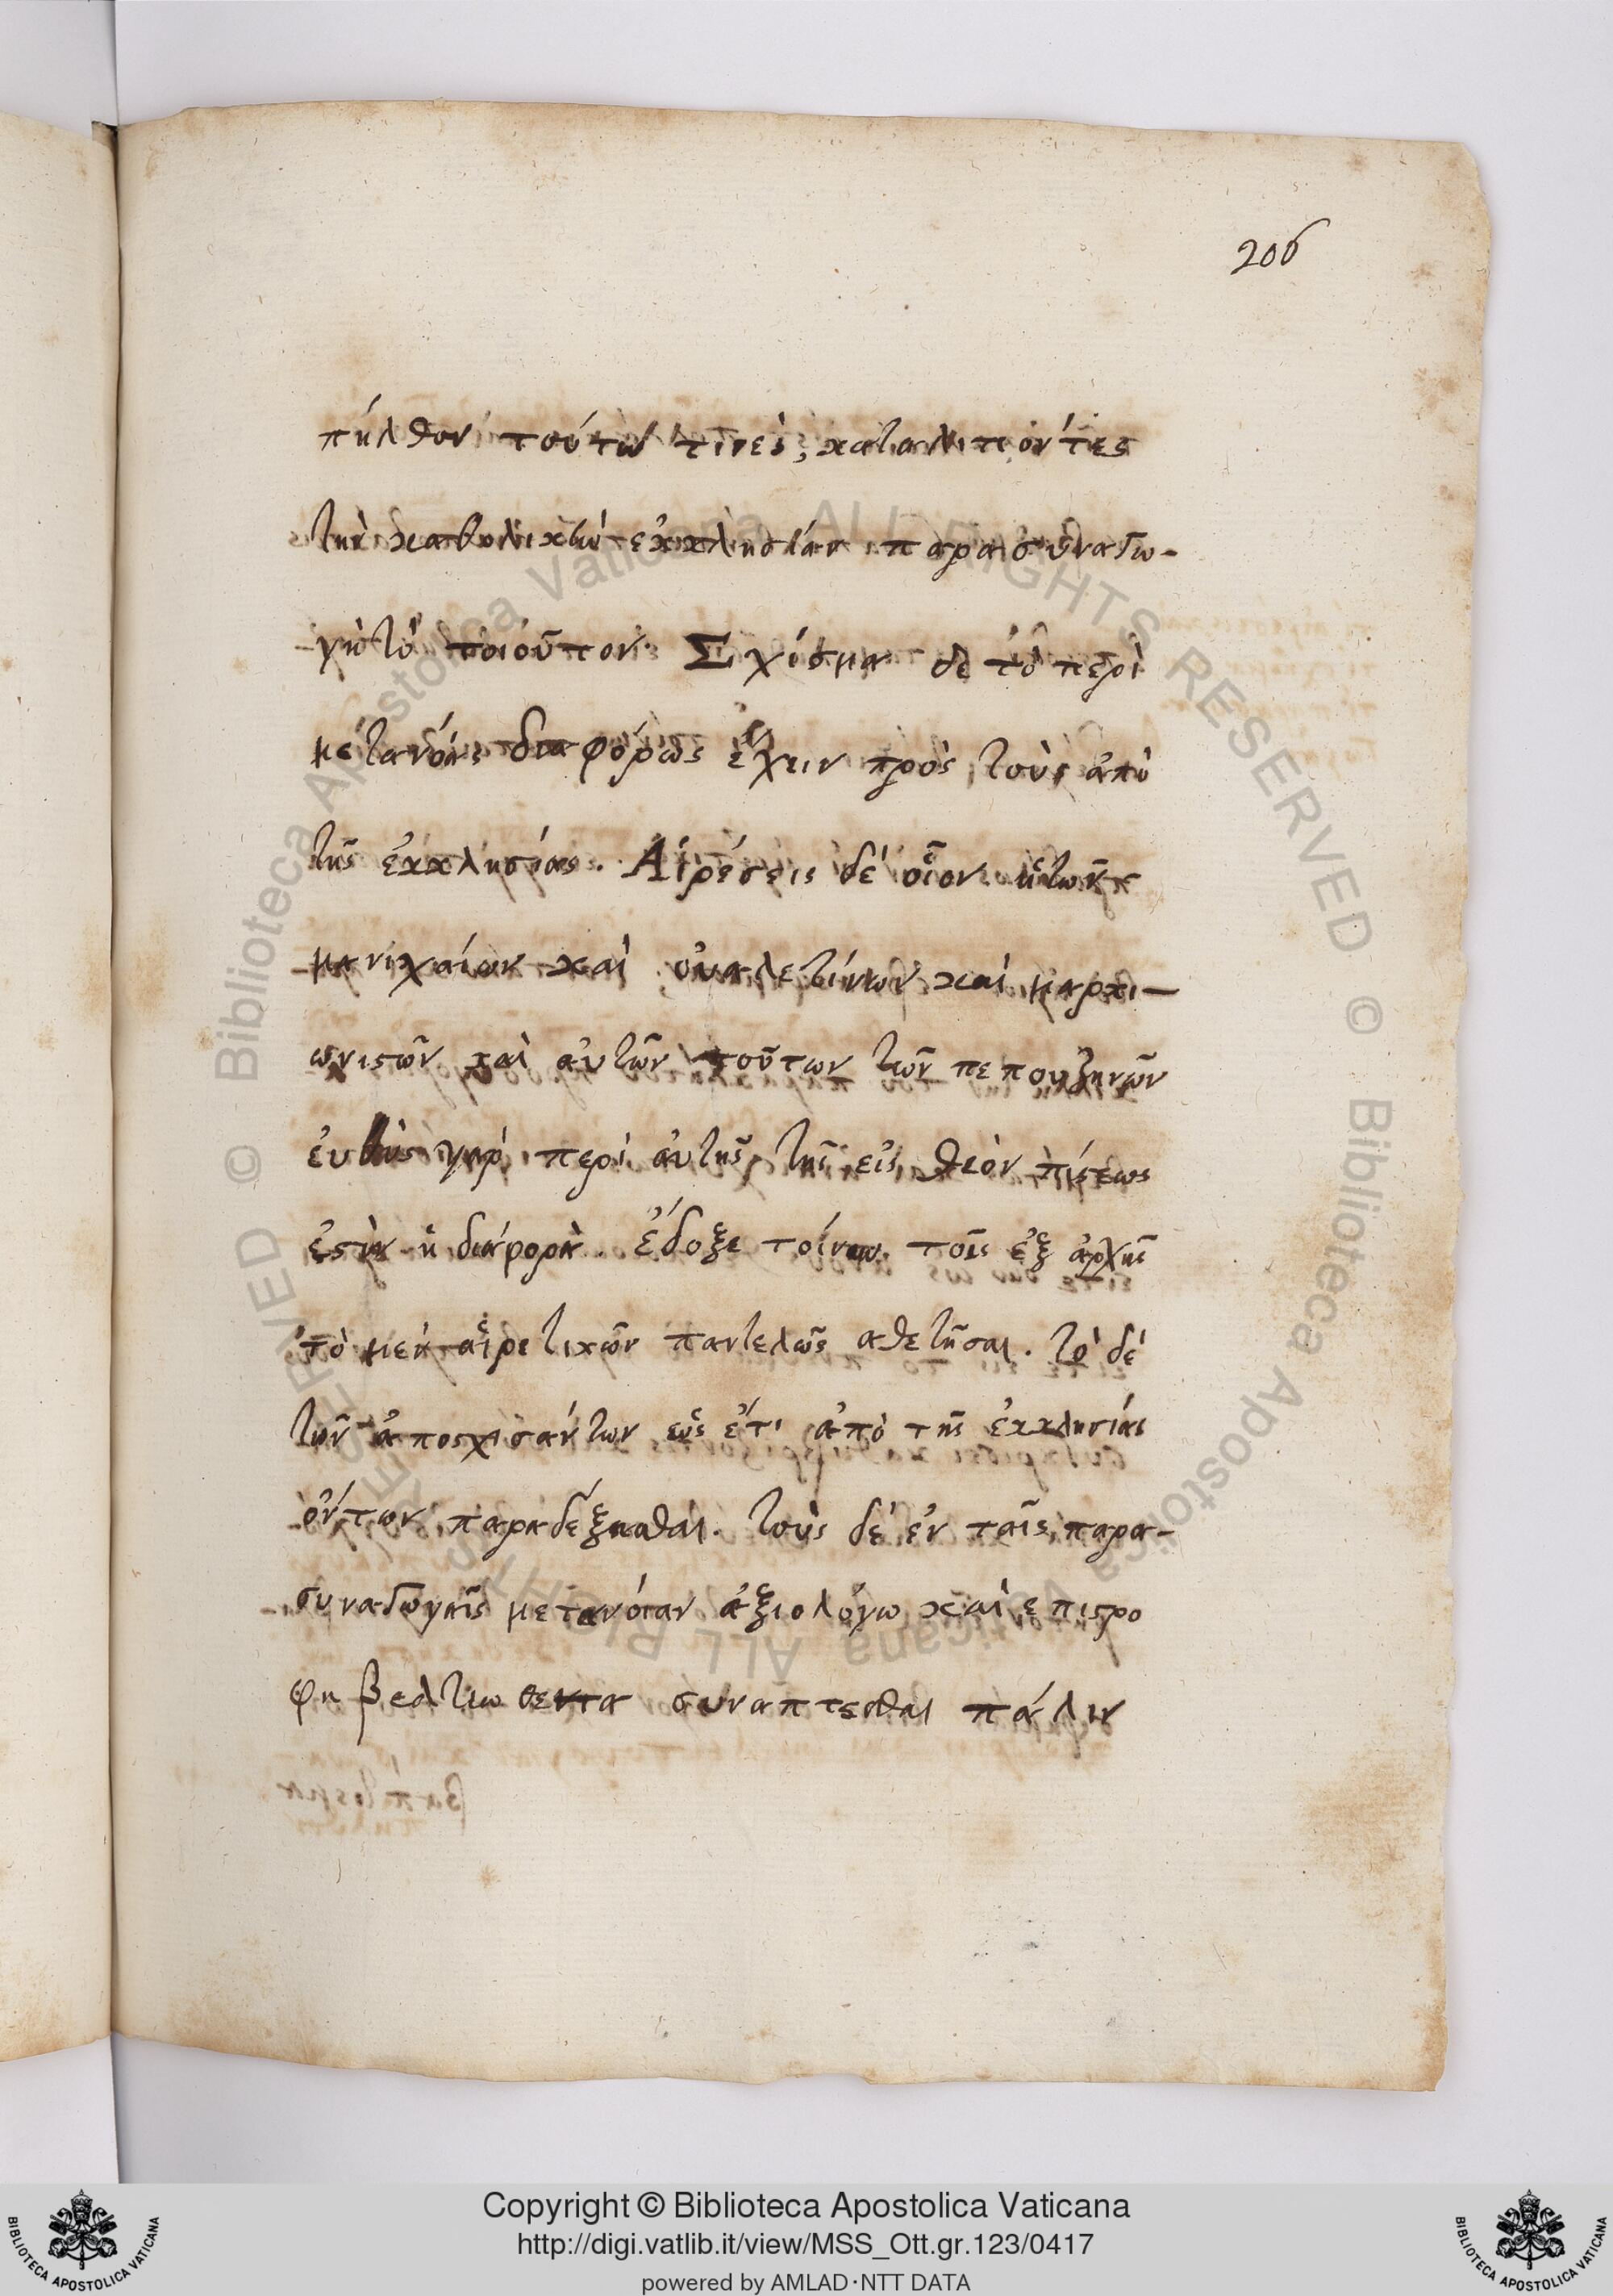 206
πῆλθον τούτω τινές, καταλιπόντες
τὴν καθολικὴν ἐκκλησίαν παρασυναγω-
γὴ τὸ τοιοῦτον. Σχίσμα δὲ τὸ περὶ
μετανοίας διαφόρως ἔχειν πρὸς τοὺς ἀπὸ
τῆς ἐκκλησίας. Αἱρέσεις δὲ οἷον ἡ τῶν
μανιχαίων καὶ οὐαλετίνων καὶ μαρκι-
ωνιστῶν καὶ αὐτῶν τούτων τῶν πεπουζηνῶν
εὐθὺς γὰρ περὶ αὐτῆς τῆς εἰς θεὸν πίστεως
ἐστὶν ἡ διαφορὰ. ἔδοξε τοίνυν τοῖς ἐξ ἀρχῆς
τὸ μὲν αἱρετικῶν παντελῶς αθετῆσαι. τὸ δὲ
τῶν ἀποσχισάντων ὡς ἔτι ἀπὸ τῆς ἐκκλησίας
ὄντων παραδέξασθαι. τοὺς δὲ ἐν ταῖς παρα-
συναγωγαῖς μετανοίαν ἀξιολόγω καὶ επιστρο
φη βελτιωθεντα συναπτεσθαι πάλιν
© Biblioteca Apostolica Vaticana ALL RIGHTS RESERVED © Biblioteca Apostolica Vaticana ALL RIGHTS RESERVED
BIBLIOTECA APOSTOLICA VATICANA
Copyright © Biblioteca Apostolica Vaticana
http://digi.vatlib.it/view/MSS_Ott.gr.123/0417
powered by AMLAD·NTT DATA
BIBLIOTECA APOSTOLICA VATICANA